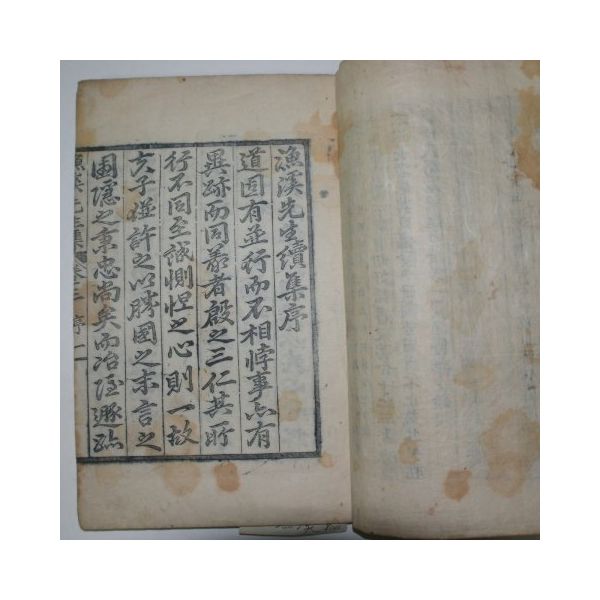 漁溪先生續集序
道固有並行而不相悖事亦有
異跡而同義者殷之三仁其所
行不同至誠惻怛之心則一故
夫子並許之以勝國之末言之
圃隱之秉忠尚矣而冶隱遯跡
漁溪先生集 卷之三 序 一